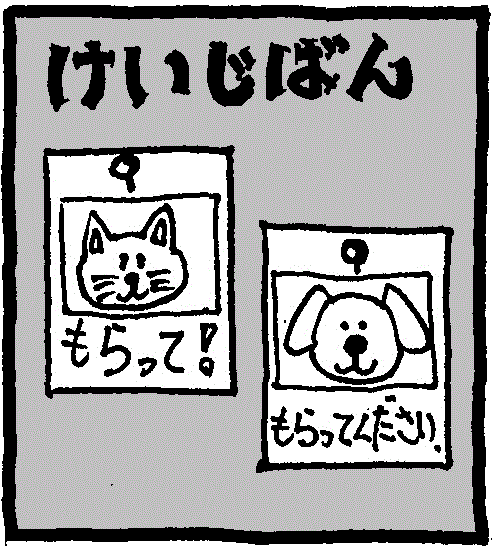 けいじばん
もらって!
もらってください.